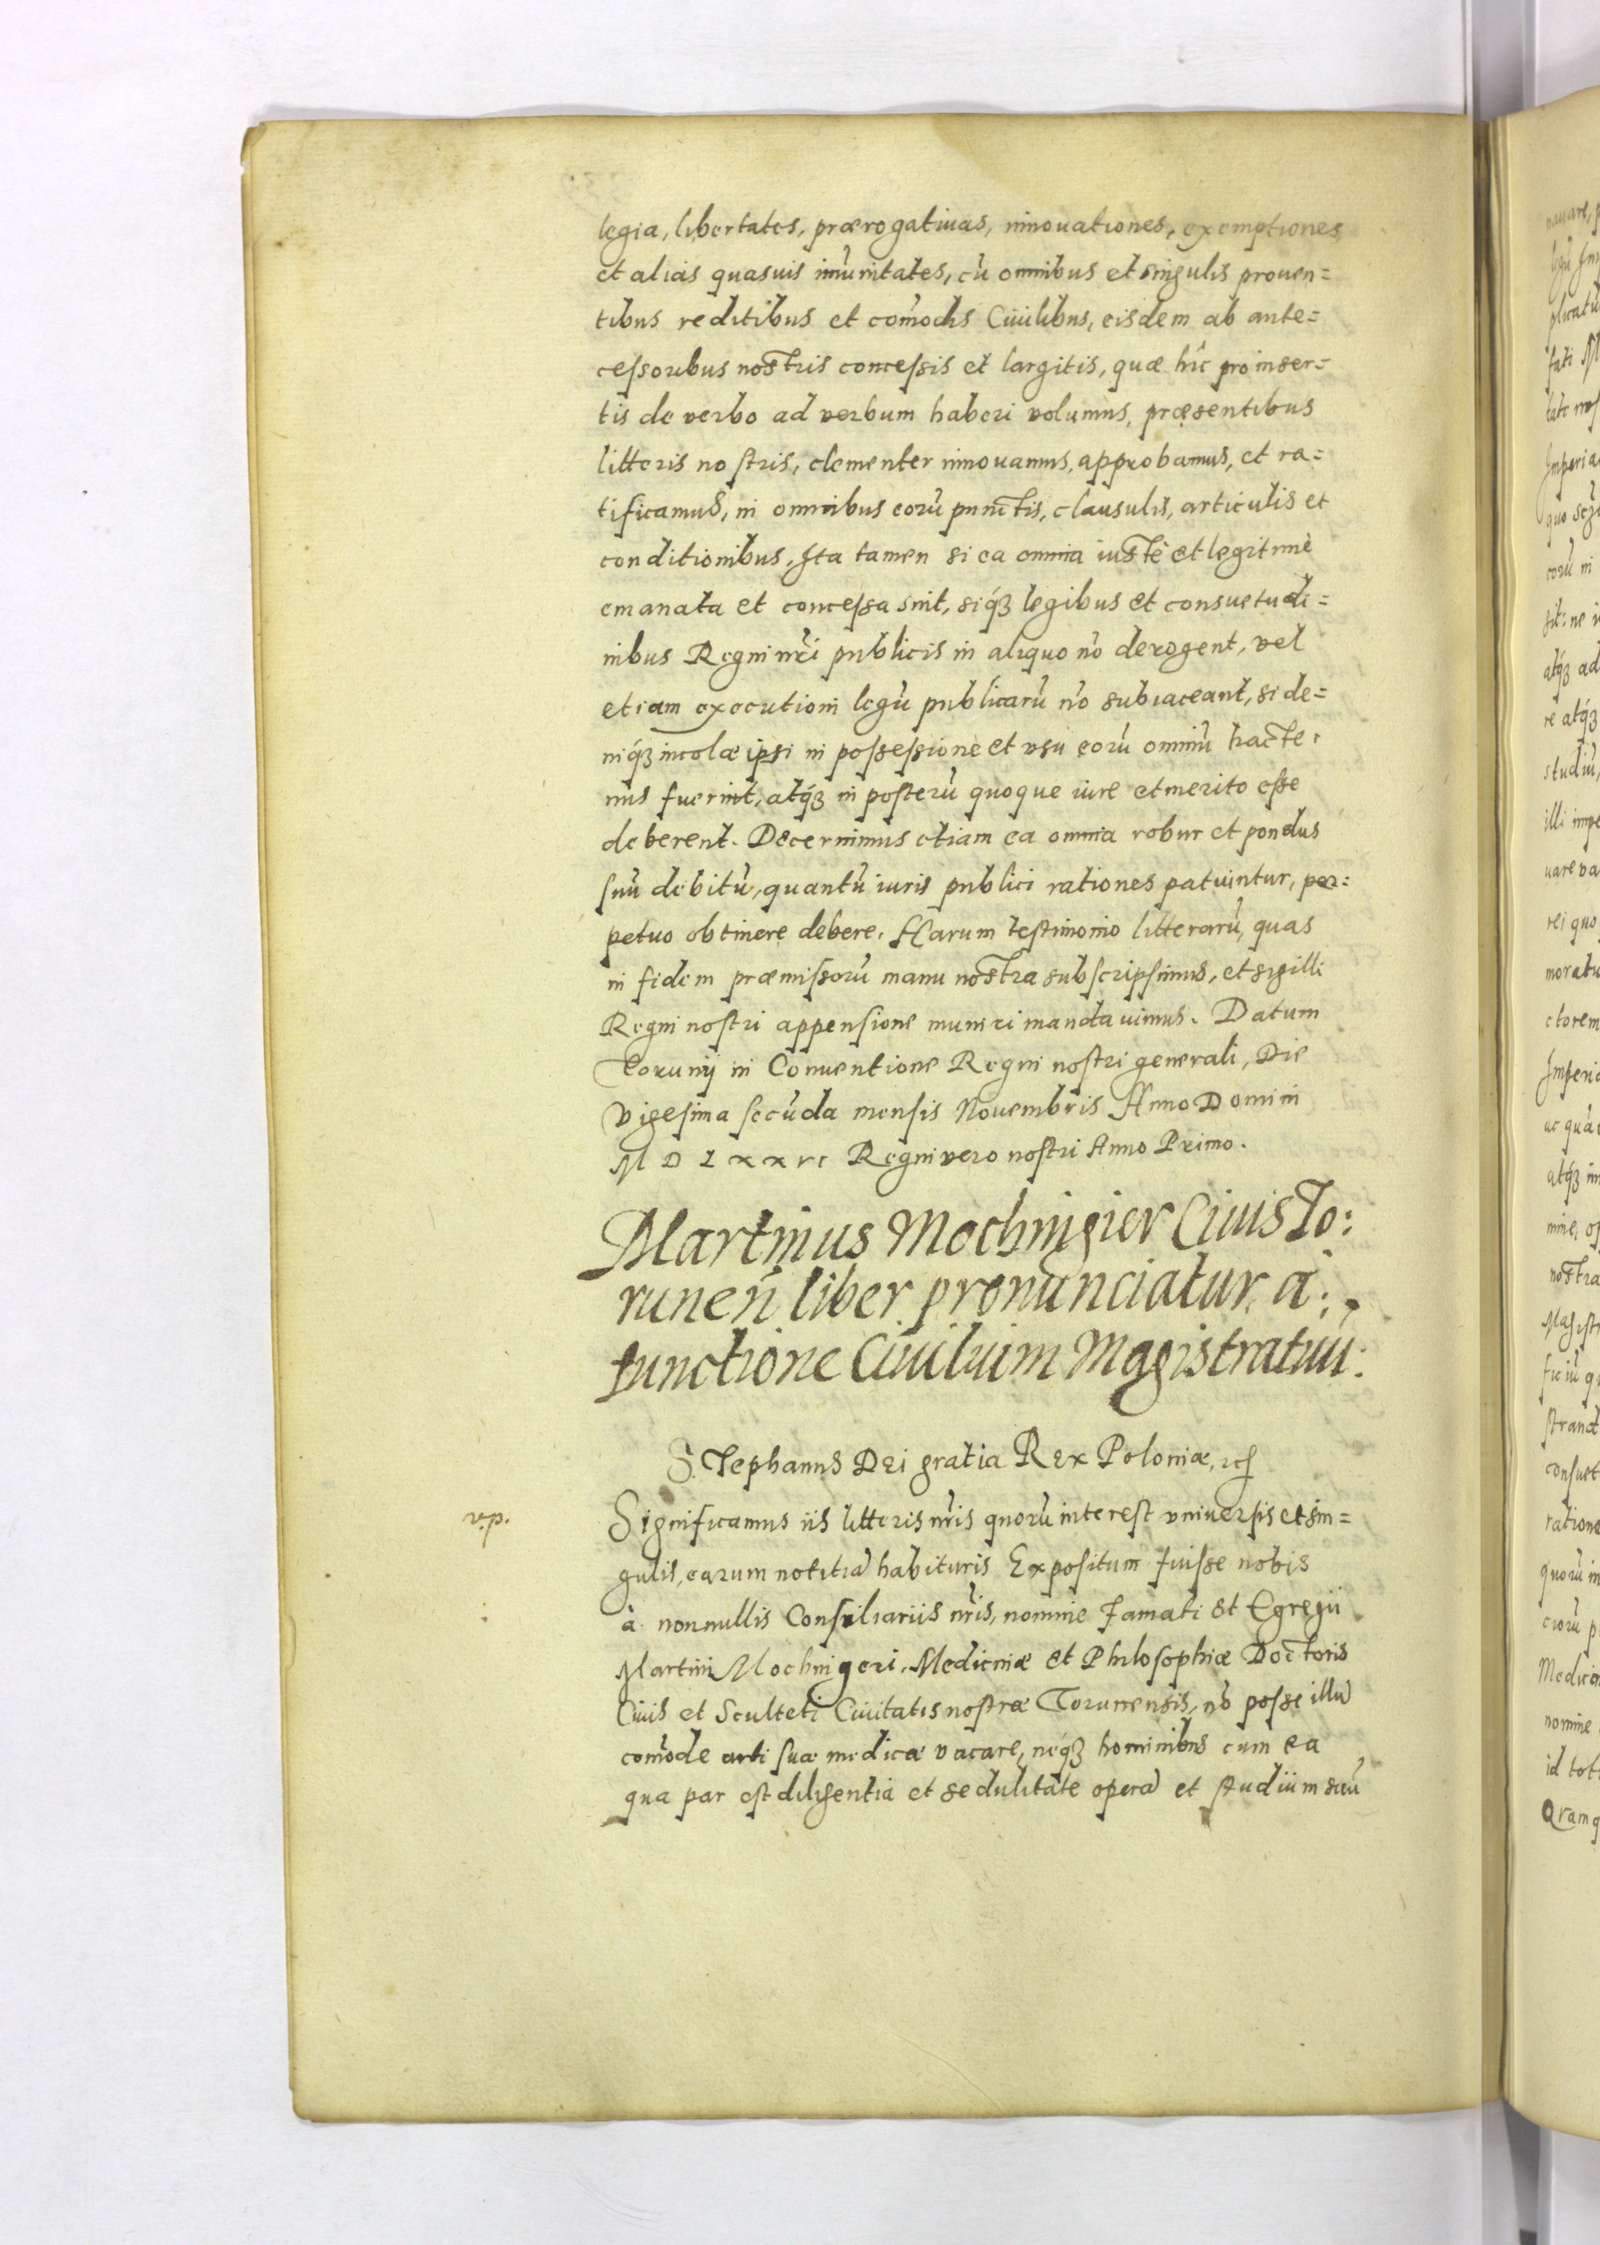 legia, libertates, prærogatiuas, innouationes, exemptiones
et alias quasuis im̃unitates, cũ omnibus et singulis prouen=
tibus reditibus et com̃odis Ciuilibus, eisdem ab ante=
cessoribus nostris concessis et largitis, quæ hîc pro inser=
tis de verbo ad verbum haberi volumus, præsentibus
litteris nostris, clementer innouamus, approbamus, et ra=
tificamus, in omnibus eorũ punctis, clausulis, articulis et
conditionibus, Ita tamen si ea omnia iustè et legitimè
emanata et concessa sint, siq́ꝫ legibus et consuetudi=
nibus Regni nr̃i publicis in aliquo nõ derogent, vel
etiam executioni legũ publicarũ nõ subiaceant, si de=
niq́ꝫ incolæ ipsi in possessione et vsu eorũ omniũ hacte=
nus fuerint, atq́ꝫ in posterũ quoque iure et merito esse
deberent. Decernimus etiam ea omnia robur et pondus
suũ debitũ, quantũ iuris publici rationes patiuntur, per=
petuo obtinere debere. Harum testimonio litterarũ, quas
in fidem præmissorũ manu nostra subscripsimus, et sigilli
Regni nostri appensione muniri mandauimus. Datum
Torunij in Conuentione Regni nostri generali, Die
Vigesima secũda mensis Nouembris Anno Domini
M D L x x vi Regni vero nostri Anno Primo.
Martinus Mochingier Ciuis To:
runeñ liber pronunciatur à:
functione Ciuilium Magistratuũ:
Stephanus Dei gratia Rex Poloniæ, ꝛc̃
Significamus iis litteris nr̃is quorũ interest vniuersis et sin=
gulis, earum notitiã habituris Expositum fuisse nobis
à nonnullis Consiliariis nr̃is, nomine Famati et Egregii
Martini Mochingeri, Medicinæ et Philosophiæ Doctoris
Ciuis et Sculteti Ciuitatis nostræ Torunensis, nõ posse illũ
com̃ode arti suæ medicæ vacare, neq́ꝫ hominibus cum ea
qua par est diligentia et sedulitate operã et studiium suũ